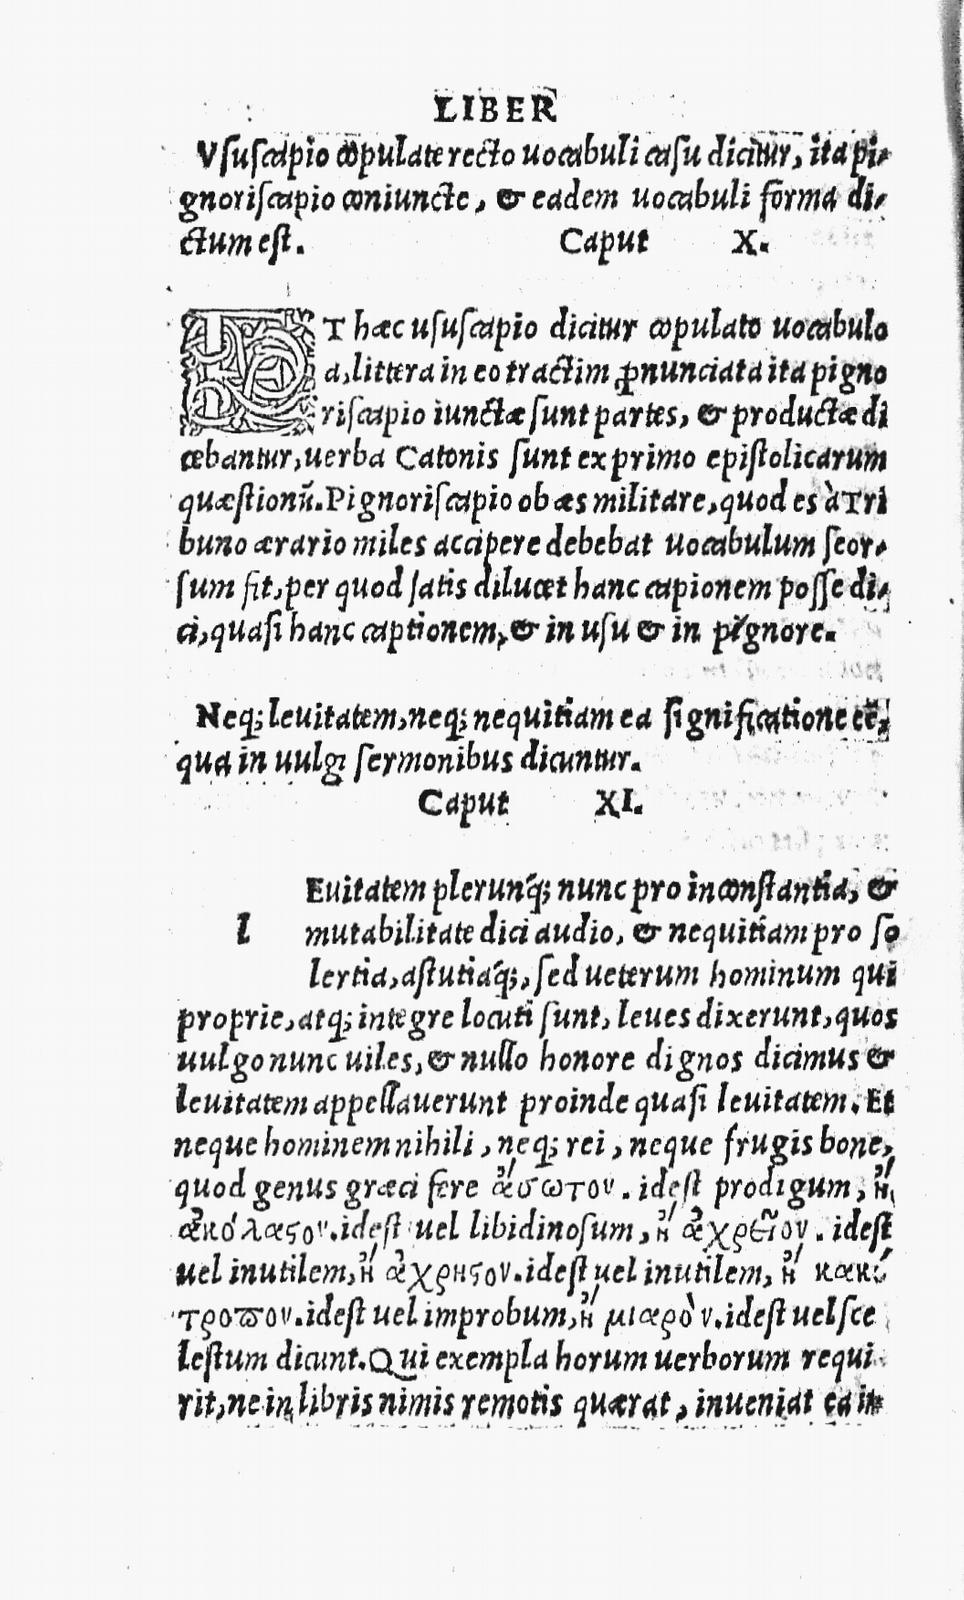 LIBER
Vsuscapio copulate recto uocabuli casu dicitur, ita pi-
gnoriscapio coniuncte, & eadem uocabuli forma di-
ctum est. Caput X.
ET hæc ususcapio dicitur copulato uocabulo
a, littera in eo tractim ꝓnunciata ita pigno
riscapio iunctæ sunt partes, & productæ di
cebantur, uerba Catonis sunt ex primo epistolicarum
quæstionū. Pignoriscapio ob æs militare, quod es à Tri
buno ærario miles accipere debebat uocabulum seor-
sum fit, per quod satis dilucet hanc capionem posse di-
ci, quasi hanc captionem, & in usu & in pignore.
Neq; leuitatem, neq; nequitiam ea significatione eē,
qua in uulgi sermonibus dicuntur.
Caput XI.
LEuitatem plerunq́; nunc pro inconstantia, &
mutabilitate dici audio, & nequitiam pro so
lertia, astutiaq́;, sed ueterum hominum qui
proprie, atq; integre locuti sunt, leues dixerunt, quos
uulgo nunc uiles, & nullo honore dignos dicimus &
leuitatem appellauerunt proinde quasi leuitatem. Et
neque hominem nihili, neq; rei, neque frugis bone,
quod genus græci fere ἄσωτον. idest prodigum, ἢ
ἀκόλαϛον. idest uel libidinosum, ἢ ἀχρεῖον. idest
uel inutilem, ἢ ἄχρηϛον. idest uel inutilem, ἢ κακό
τροπον. idest uel improbum, ἢ μιαρὸν. idest uel sce
lestum dicunt. Qui exempla horum uerborum requi
rit, ne in libris nimis remotis quærat, inueniat ea in